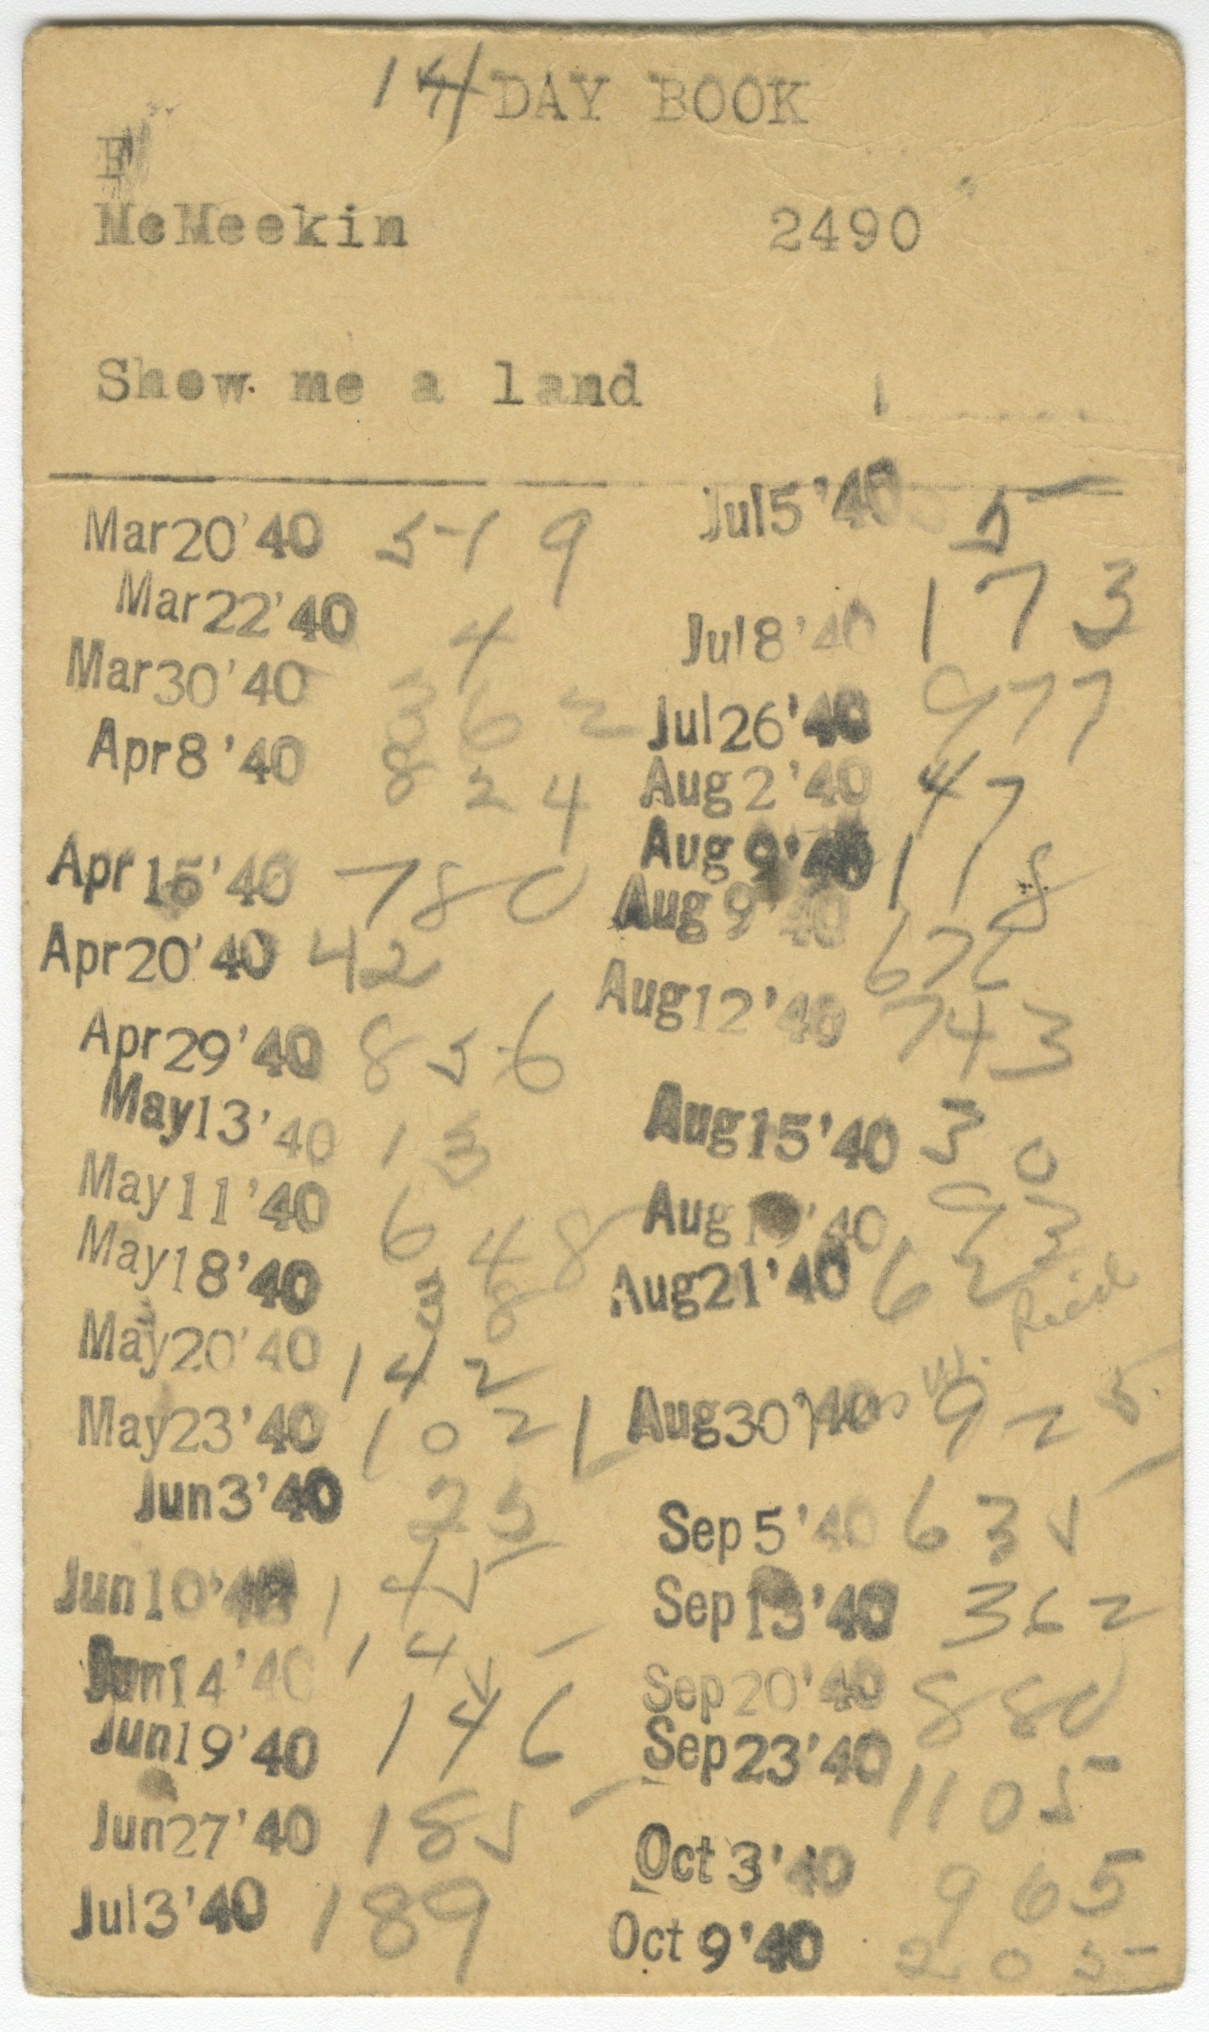 14 DAY BOOK
F
McMeekin 2490
Show me a land
Mar20'40 519
Mar22'40 4
Mar30'40 362
Apr8'40 824
Apr15'40 780
Apr20'40 42
Apr29'40 856
May13'40 13
May11'40 648
May18'40 38
May20'40 142
May23'40 1021
Jun3'40 25
Jun10'40 145
Jun14'40 14
Jun19'40 146
Jun27'40 185
Jul3'40 189
Jul5'40 5
Jul8'40 173
Jul26'40 977
Aug2'40 47
Aug9'40 118
Aug9'40
Aug12'40 743
Aug15'40 30
Aug19'40 93
Aug21'40 62
Aug30'40 925
Sep5'40 635
Sep13'40 362
Sep20'40 880
Sep23'40 1105
Oct3'40 965
Oct9'40 205